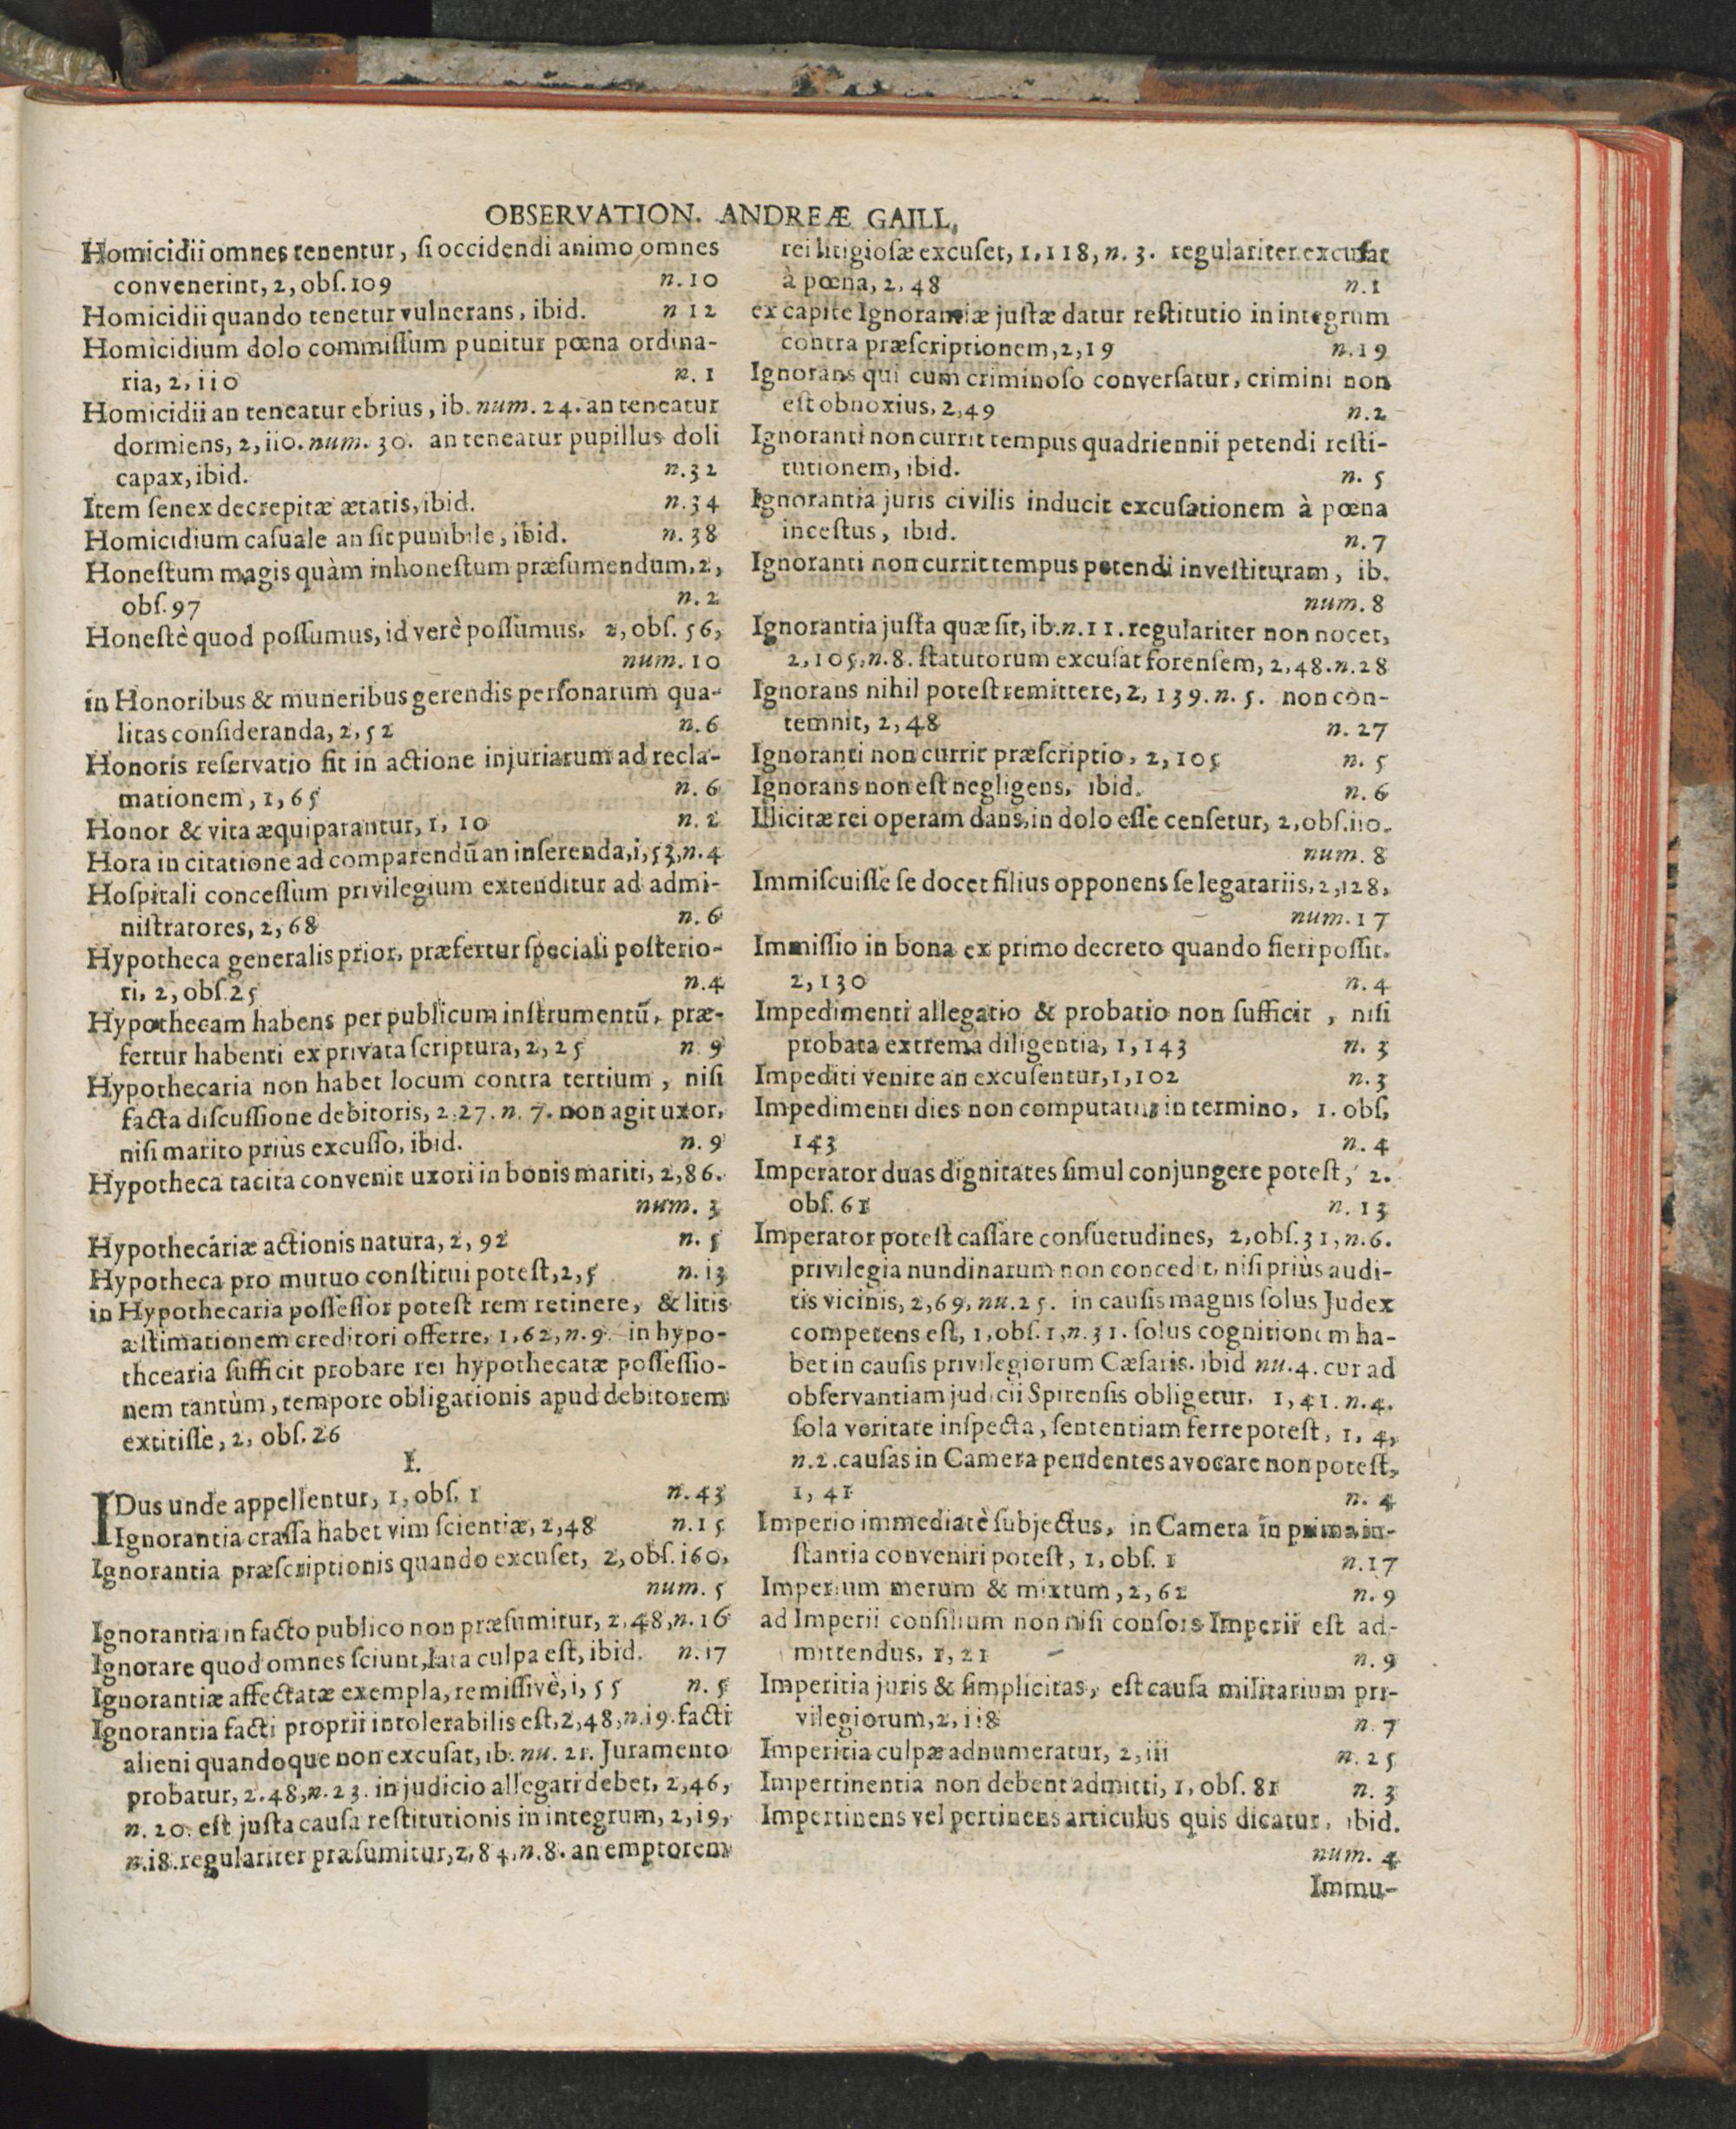 OBSERVATION. ANDREÆ GAILL.
Homicidii omnes tenentur, ſi occidendi animo omnes
convenerint, 2, obſ. 109 n. 10
Homicidii quando tenetur vulnerans, ibid. n 12
Homicidium dolo commiſſum punitur pœna ordina-
ria, 2, 110 n. 1
Homicidii an teneatur ebrius, ib. num. 24. an teneatur
dormiens, 2, 110. num. 30. an teneatur pupillus doli
capax, ibid. n. 32
Item ſenex decrepitæ ætatis, ibid. n. 34
Homicidium caſuale an ſit punibile, ibid. n. 38
Honeſtum magis quàm inhoneſtum præſumendum, 2,
obſ. 97 n. 2
Honeſtè quod poſſumus, id verè poſſumus, 2, obſ. 56,
num. 10
in Honoribus & muneribus gerendis perſonarum qua-
litas conſideranda, 2, 52 n. 6
Honoris reſervatio fit in actione injuriarum ad recla-
mationem, 1, 65 n. 6
Honor & vita æquiparantur, 1, 10 n. 2
Hora in citatione ad comparendū an inſerenda, i, 53, n. 4
Hoſpitali conceſſum privilegium extenditur ad admi-
niſtratores, 2, 68 n. 6
Hypotheca generalis prior, præfertur ſpeciali poſterio-
ri, 2, obſ. 25 n. 4
Hypothecam habens per publicum inſtrumentū, præ-
fertur habenti ex privata ſcriptura, 2, 25 n. 9
Hypothecaria non habet locum contra tertium, niſi
facta diſcuſſione debitoris, 2. 27. n. 7. non agit uxor,
niſi marito priùs excuſſo, ibid. n. 9
Hypotheca tacita convenit uxori in bonis mariti, 2, 86.
num. 3
Hypothecáriæ actionis natura, 2, 92 n. 5
Hypotheca pro mutuo conſtitui poteſt, 2, 5 n. 13
in Hypothecaria poſſeſſor poteſt rem retinere, & litis
æſtimationem creditori offerre, 1, 62, n. 9. in hypo-
thcearia ſufficit probare rei hypothecatæ poſſeſſio-
nem tantùm, tempore obligationis apud debitorem
extitiſſe, 2, obſ. 26
I.
IDus unde appellentur, 1, obſ. 1 n. 43
Ignorantia craſſa habet vim ſcientiæ, 2, 48 n. 15
Ignorantia præſcriptionis quando excuſet, 2, obſ. 160,
num. 5
Ignorantia in facto publico non præſumitur, 2, 48, n. 16
Ignorare quod omnes ſciunt, lata culpa eſt, ibid. n. 17
Ignorantiæ affectatæ exempla, remiſſivè, i, 55 n. 5
Ignorantia facti proprii intolerabilis eſt, 2, 48, n. 19. facti
alieni quandoque non excuſat, ib. nu. 21. Juramento
probatur, 2. 48, n. 23. in judicio allegari debet, 2, 46,
n. 20. eſt juſta cauſa reſtitutionis in integrum, 2, 19,
n. 18. regulariter præſumitur, 2, 84, n. 8. an emptorem
rei litigioſæ excuſet, 1, 118, n. 3. regulariter excuſat
à pœna, 2, 48 n. 1
ex capite Ignorantiæ juſtæ datur reſtitutio in integrum
contra præſcriptionem, 2, 19 n. 19
Ignorans qui cum criminoſo converſatur, crimini non
eſt obnoxius, 2, 49 n. 2
Ignoranti non currit tempus quadriennii petendi reſti-
tutionem, ibid. n. 5
Ignorantia juris civilis inducit excuſationem à pœna
inceſtus, ibid. n. 7
Ignoranti non currit tempus petendi inveſtituram, ib.
num. 8
Ignorantia juſta quæ ſit, ib. n. 11. regulariter non nocet,
2, 105, n. 8. ſtatutorum excuſat forenſem, 2, 48. n. 28
Ignorans nihil poteſt remittere, 2, 139. n. 5. non con-
temnit, 2, 48 n. 27
Ignoranti non currit præſcriptio, 2, 105 n. 5
Ignorans non eſt negligens, ibid. n. 6
Illicitæ rei operam dans, in dolo eſſe cenſetur, 2, obſ. 110.
num. 8
Immiſcuiſſe ſe docet filius opponens ſe legatariis, 2, 128,
num. 17
Immiſſio in bona ex primo decreto quando fieri poſſit.
2, 130 n. 4
Impedimenti allegatio & probatio non ſufficit, niſi
probata extrema diligentia, 1, 143 n. 3
Impediti venire an excuſentur, 1, 102 n. 3
Impedimenti dies non computatur in termino, 1. obſ,
143 n. 4
Imperator duas dignitates ſimul conjungere poteſt, 2.
obſ. 61 n. 13
Imperator poteſt caſſare conſuetudines, 2, obſ. 31, n. 6.
privilegia nundinarum non concedit, niſi priùs audi-
tis vicinis, 2, 69, nu. 25. in cauſis magnis ſolus Judex
competens eſt, 1, obſ. 1, n. 31. ſolus cognitionem ha-
bet in cauſis privilegiorum Cæſaris. ibid nu. 4. cur ad
obſervantiam judicii Spirenſis obligetur, 1, 41. n. 4.
ſola veritate inſpecta, ſententiam ferre poteſt, 1, 4,
n. 2. cauſas in Camera pendentes avocare non poteſt,
1, 41 n. 4
Imperio immediatè ſubjectus, in Camera in prima in-
ſtantia conveniri poteſt, 1, obſ. 1 n. 17
Imperium merum & mixtum, 2, 62 n. 9
ad Imperii conſilium non niſi conſors Imperii eſt ad-
mittendus, 1, 21 n. 9
Imperitia juris & ſimplicitas, eſt cauſa militarium pri-
vilegiorum, 2, 118 n. 7
Imperitia culpæ adnumeratur, 2, iii n. 25
Impertinentia non debent admitti, 1, obſ. 81 n. 3
Impertinens vel pertinens articulus quis dicatur, ibid.
num. 4
Immu-